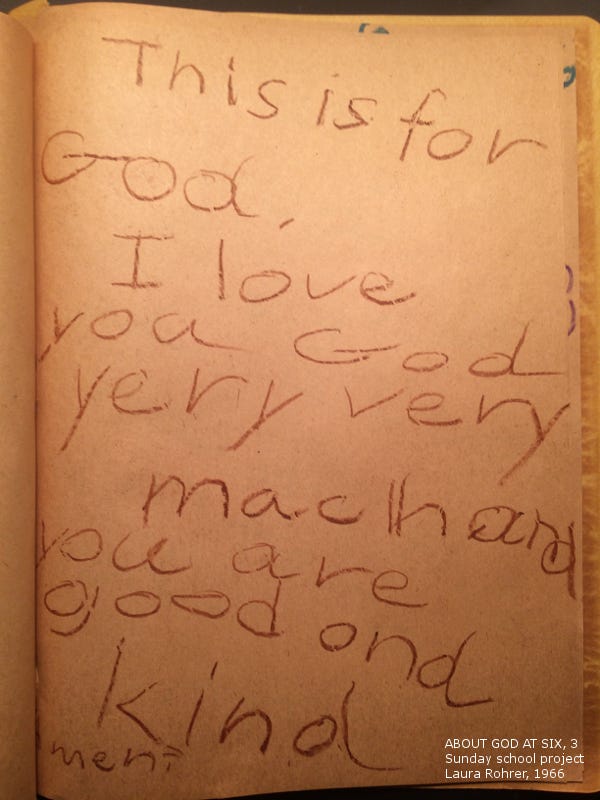 This is for
God,
I love
you God
yery very
mach and
you are
good and
kind
men
ABOUT GOD AT SIX, 3
Sunday school project
Laura Rohrer, 1966